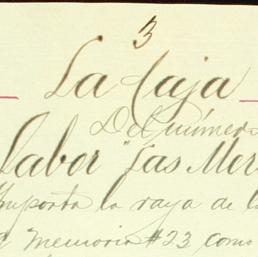 3
La Caja
Del número
Labor "Las Mer
Importa la raya de l
Memoria #23 como